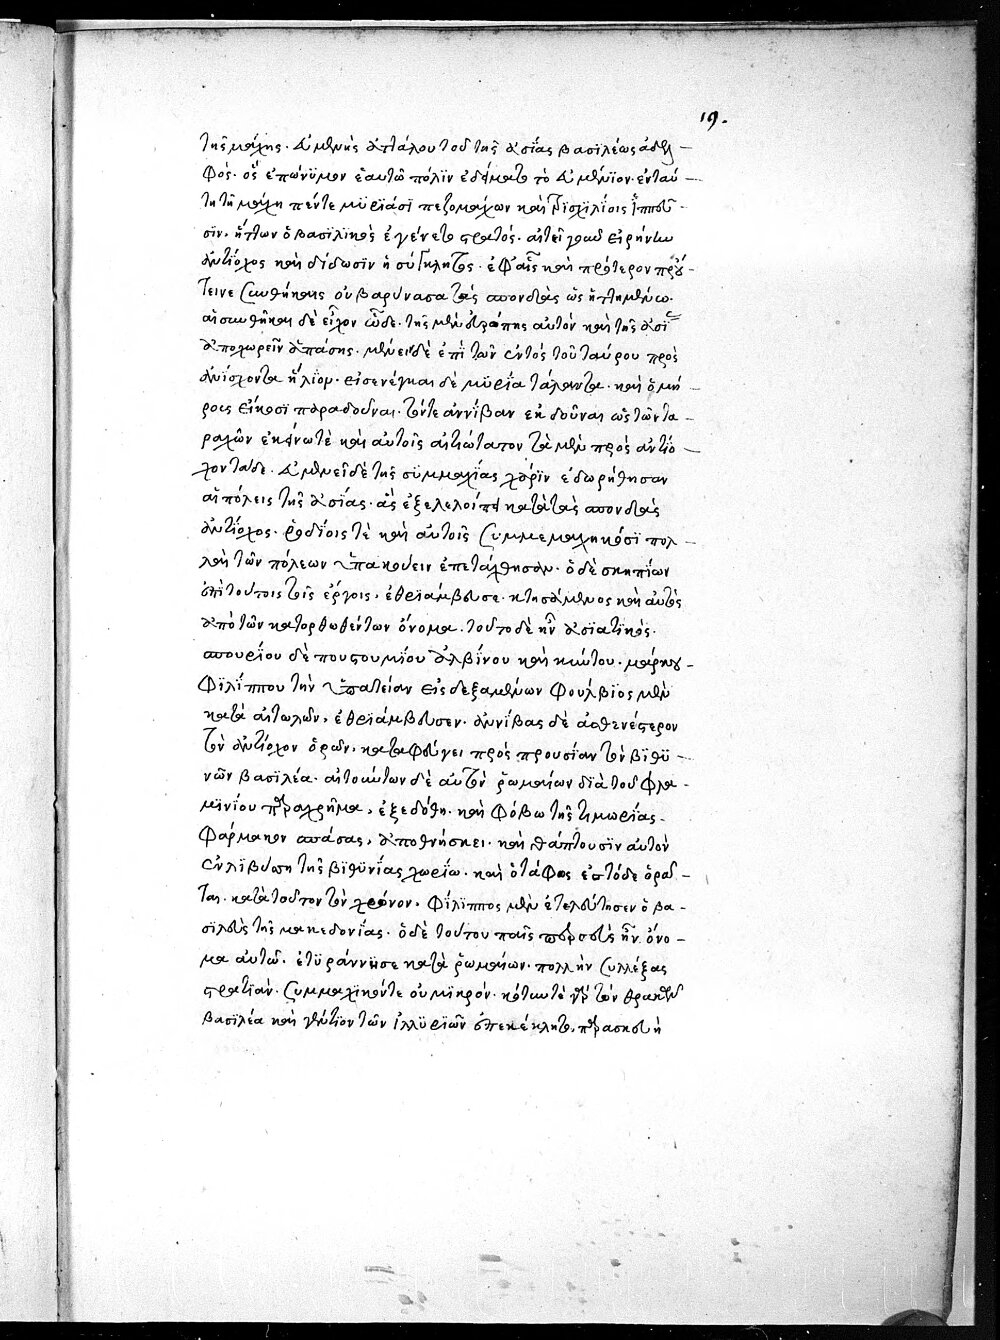 19.
τῆς μάχης. εὐμενὴς ἀττάλου τοῦ τῆς ἀσίας βασιλέως ἀδελ
φός. ὃς ἐπώνϋμον ἑαυτῶ πόλϊν ἐδείματο τὸ εὐμένϊον. ἐνταύ
τη τῆ μάχη πέντε μϋριάσϊ πεζομάχων καὶ τρϊσχϊλίοις ἱππεῦ
σϊν, ἥττων ὁ βασϊλϊκὸς ἐγένετο στρατός. αἰτεῖ γοῦν εἰρήνην
ἀντίοχος καὶ δίδωσϊν ἡ σύγκλητος. ἐφ' αἷς καὶ πρότερον πρού
τεινε συνθήκαις οὐ βαρύνασα τὰς σπονδὰς ὡς ἡττημένω.
αἱ συνθῆκαι δὲ εἶχον ὧδε. τῆς μὲν εὐρώπης αὐτὸν καὶ τῆς ἀσί
ἀποχωρεῖν ἁπάσης. μένειν δὲ ἐπὶ τῶν ἐντὸς τοῦ ταύρου πρὸς
ἀνίσχοντα ἥλϊον. εἰσενέγκαι δὲ μϋρία τάλαντα. καὶ ὁμή
ρους εἴκοσϊ παραδοῦναι. τόντε ἀννίβαν ἐκδοῦναι ὡς τῶν τα
ραχῶν ἐκείνω τὲ καὶ αὐτοῖς αἰτιώτατον τὰ μὲν πρὸς ἀντίο
χον τάδε. εὐμένει δὲ τῆς συμμαχίας χάρϊν ἐδωρήθησαν
αἱ πόλεις τῆς ἀσίας. ἃς ἐξελελοίπει κατὰ τὰς σπονδὰς
ἀντίοχος. ῥοδίοις τὲ καὶ αὐτοῖς συμμεμαχηκόσϊ πολ
λαὶ τῶν πόλεων ὑπακούειν ἐπετάχθησαν. ὁ δὲ σκηπίων
ἐπὶ τούτοις τοῖς ἔργοις, ἐθριάμβευσε. κτησάμενος καὶ αὐτὸς
ἀπὸ τῶν κατορθωθέντων ὄνομα. τοῦτο δὲ ἦν ἀσϊατϊκός.
σπουρίου δὲ ποὐστουμίου ἀλβίνου καὶ κυίντου. μάρκου
φϊλίππου τὴν ὑπατείαν εἰσδεξαμένων φούλβϊος μὲν
κατὰ αἰτωλῶν, ἐθριάμβευσεν. ἀννίβας δὲ ἀσθενέστερον
τὸν ἀντίοχον ὁρῶν, καταφεύγει πρὸς προυσίαν τὸν βϊθϋ
νῶν βασϊλέα. αἰτούντων δὲ αὐτὸν ῥωμαίων διὰ τοῦ φλα
μϊνίου παραχρῆμα, ἐξεδόθη. καὶ φόβω τῆς τιμωρίας
φάρμακον σπάσας, ἀποθνήσκει. καὶ θάπτουσϊν αὐτὸν
ἐν λϊβύσση τῆς βϊθϋνίας χωρίω. καὶ ὁ τάφος ἐς τόδε ὁρᾶ
ται. κατὰ τοῦτον τὸν χρόνον. φίλϊππος μὲν ἐτελεύτησεν ὁ βα
σϊλεὺς τῆς μακεδονίας. ὁ δὲ τούτου παῖς περσεὺς ἦν ὄνο
μα αὐτῶ. ἐτϋράννησε κατὰ ῥωμαίων. πολλὴν συλλέξας
στρατϊάν. συμμαχϊκόντε οὐ μϊκρόν. κότυν τὲ γὰρ τὸν θρακῶν
βασϊλέα καὶ γέντϊον τῶν ἰλλϋριῶν ἐπεκέκλητο, παρασκευῆ